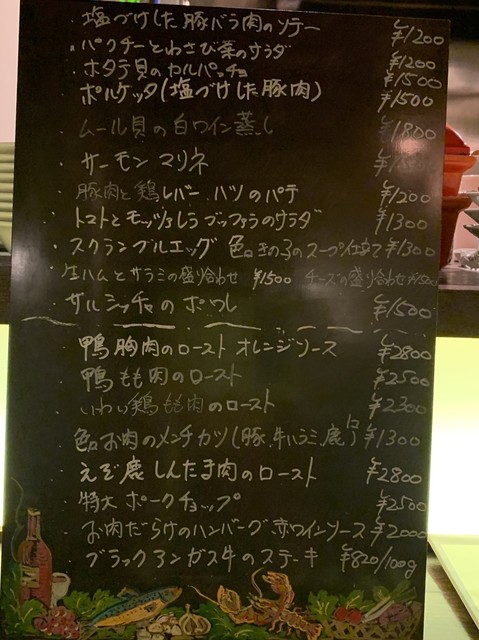 ・塩づけした豚バラ肉のソテー ¥1200
・パクチーとわさび菜のサラダ ¥1200
・ホタテ貝のカルパッチョ ¥1500
・ポルケッタ(塩づけした豚肉) ¥1500
・ムール貝の白ワイン蒸し ¥1800
・サーモンマリネ
・豚肉と鶏レバー、ハツのパテ ¥1200
・トマトとモッツァレラブッファラのサラダ ¥1300
・スクランブルエッグ 色々きの子のスープ仕立て ¥1300
・生ハムとサラミの盛り合わせ ¥1500 チーズの盛り合わせ ¥1500
・サルシッチャのボワレ ¥1500
・鴨胸肉のロースト オレンジソース ¥2800
・鴨もも肉のロースト ¥2500
・いわい鶏もも肉のロースト ¥2300
・色々お肉のメンチカツ(豚、牛ハラミ、鹿) 1コ ¥1300
・えぞ鹿しんたま肉のロースト ¥2800
・特大ポークチョップ ¥2500
・お肉だらけのハンバーグ 赤ワインソース ¥2000
・ブラックアンガス牛のステーキ ¥820/100g